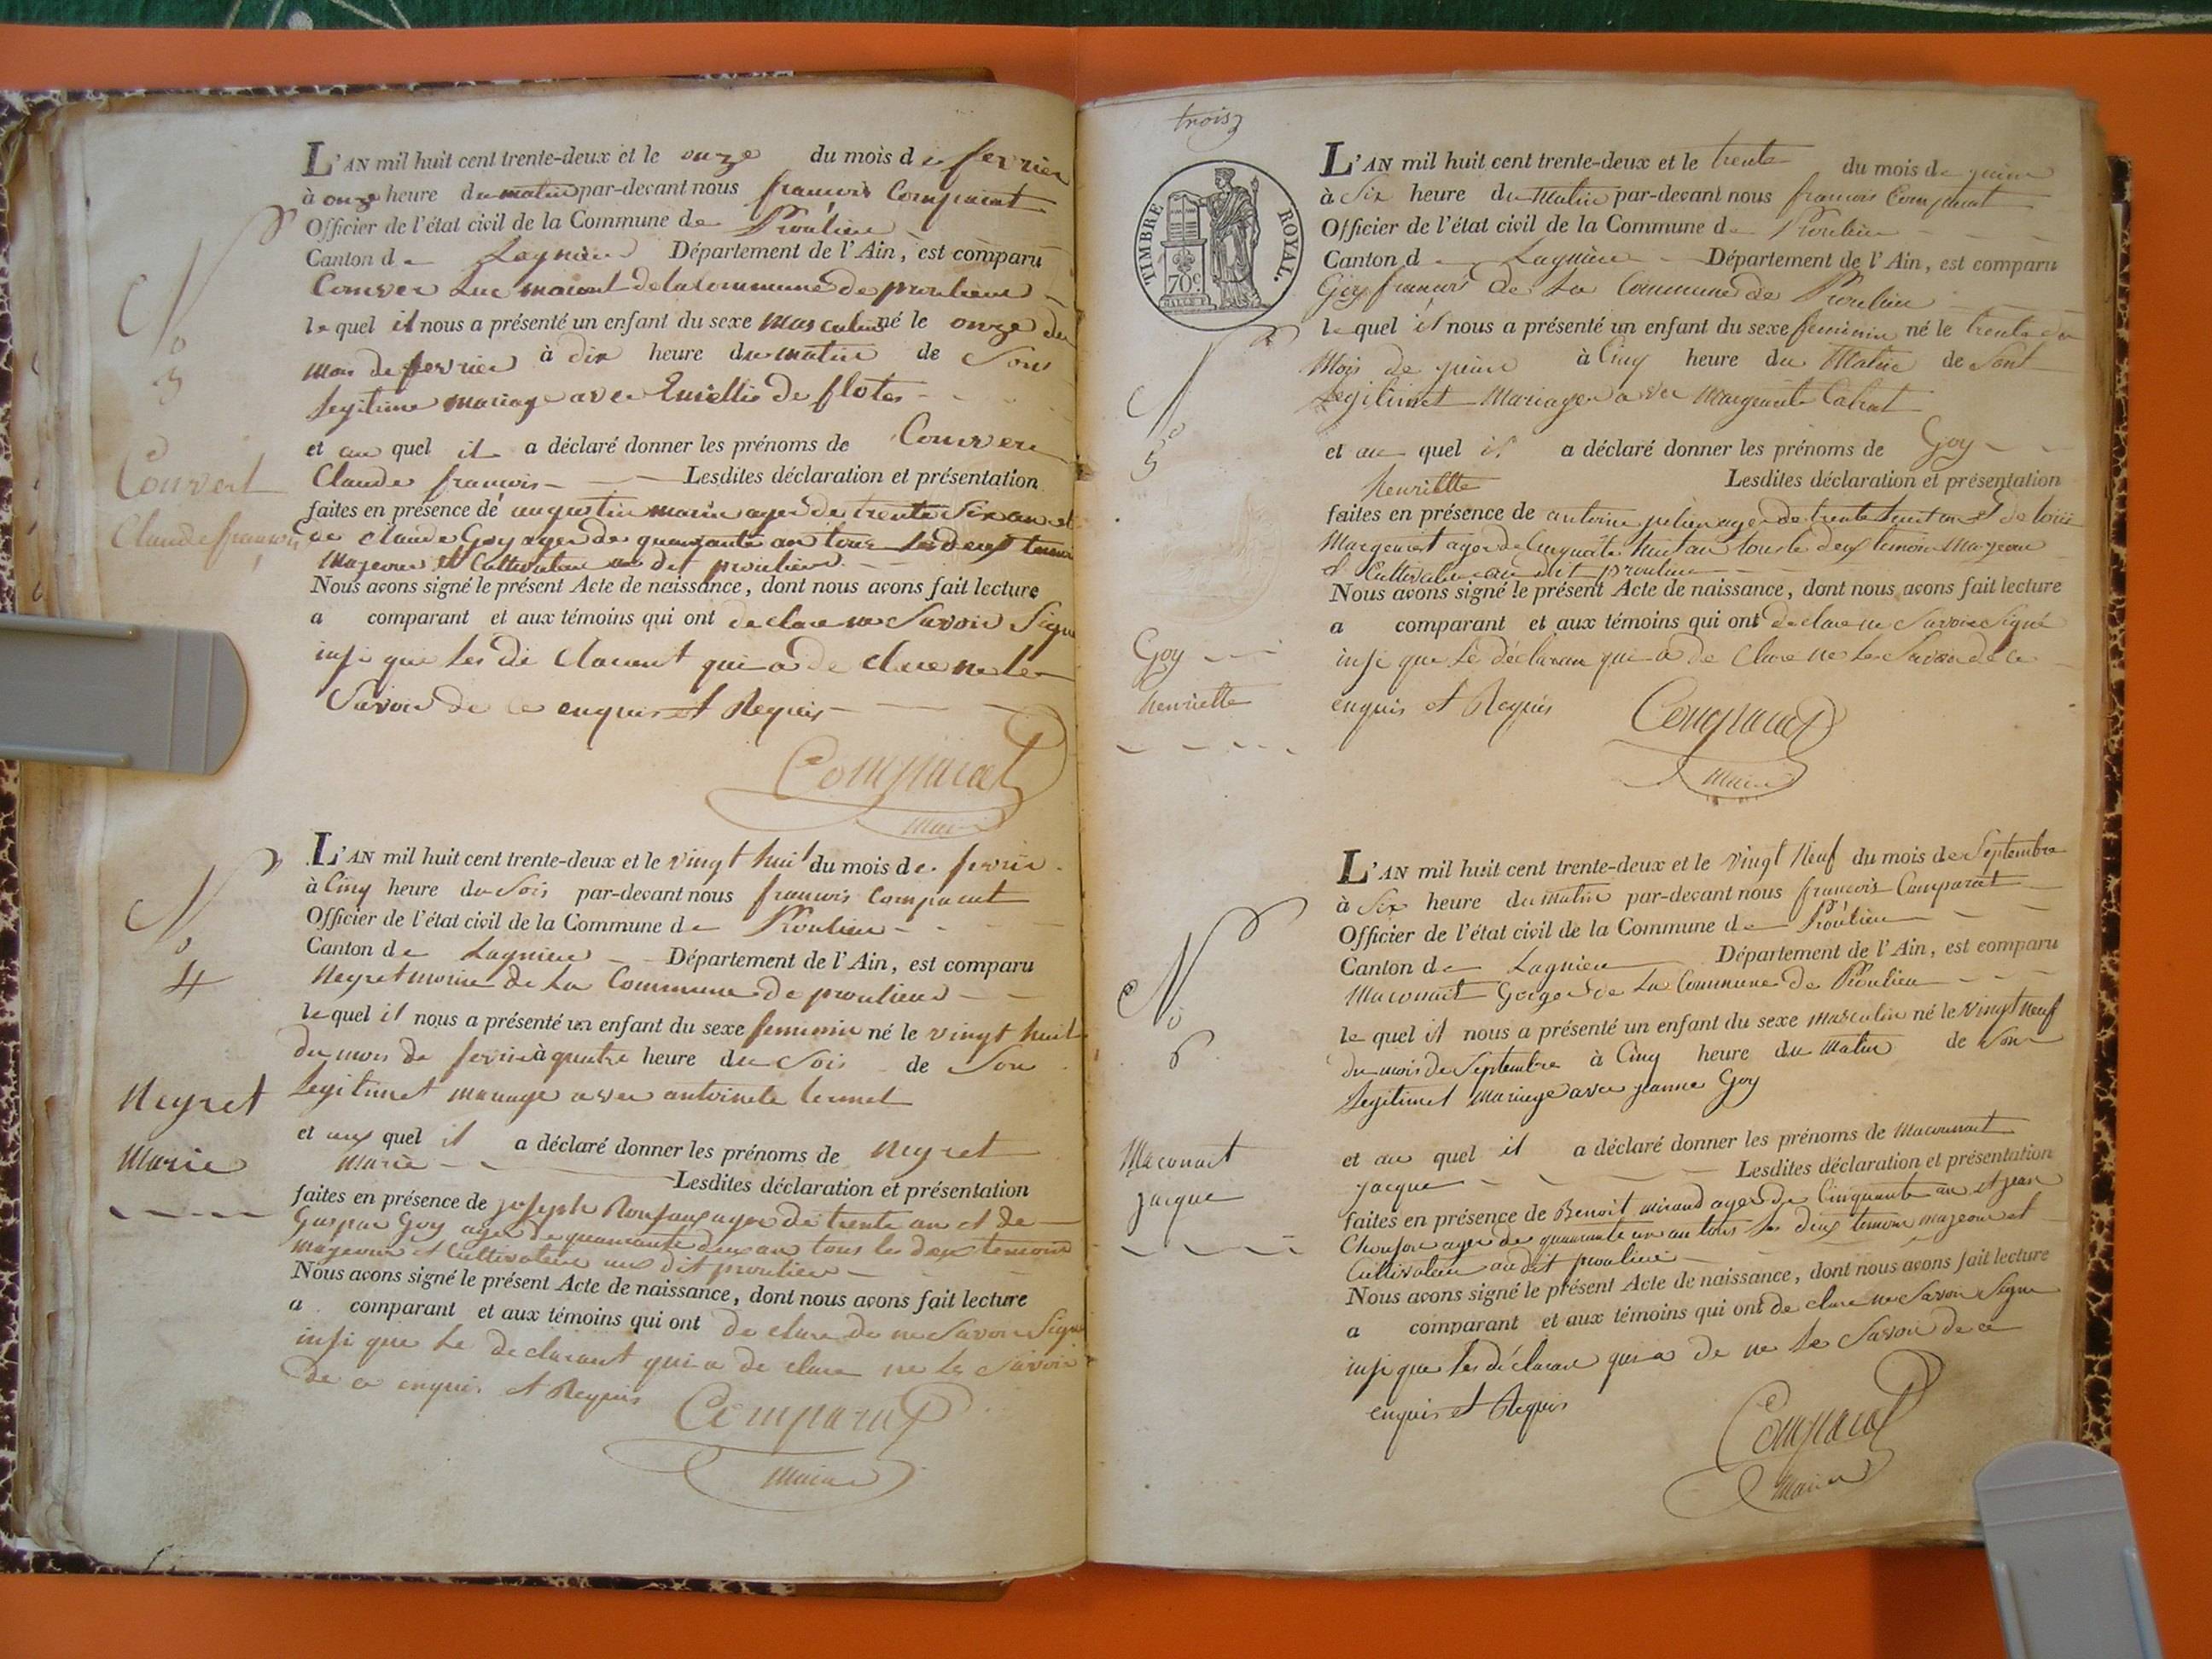 N
o
3
Couvert
Claude françois
L'AN mil huit cent trente-deux et le onze du mois de fevrier
à onze heure du matin par-devant nous françois Comparat
Officier de l'état civil de la Commune de Proulieu
Canton de Lagnieu Département de l'Ain, est comparu
Couver Luc de la Commune de proulieu
le quel il nous a présenté un enfant du sexe Masculin né le onze du
Mois de fevrier à dix heure du matin de Son
Legitime mariage avec de
et au quel il a déclaré donner les prénoms de Couver
Claude françois Lesdites déclaration et présentation
faites en présence de augustin marin ager de trente Six an et
de Claude Goy ager de quarante an tous Les deux temoin
Majeour et Cultivateur au dit proulieu
Nous avons signé le présent Acte de naissance, dont nous avons fait lecture
a comparant et aux témoins qui ont declare ne Savoir Signe
insi que Les declarant qui a de clare ne le
Savoir de ce enquis et Requis
Comparat
Maire
N
o
4
Neyret
Marie
L'AN mil huit cent trente-deux et le vingt huit du mois de fevrie
à Cinq heure du Soir par-devant nous françois Comparat
Officier de l'état civil de la Commune de Proulieu
Canton de Lagnieu Département de l'Ain, est comparu
Neyret de La Commune de proulieu
le quel il nous a présenté un enfant du sexe feminin né le vingt huit
du mois de fevrie à quatre heure du Soir de Son
Legitimet mariage avec antoinete
et aux quel il a déclaré donner les prénoms de Neyret
Marie Lesdites déclaration et présentation
faites en présence de joseph ager de trente an et de
Gaspar Goy ager de quarante deux an tous les deux temoin
majeour et Cultivateur aux dit proulieu
Nous avons signé le présent Acte de naissance, dont nous avons fait lecture
a comparant et aux témoins qui ont de clare de ne Savoir Signe
insi que Le declarant qui a de clare ne Le Savoir
de ce enquis et Requis
Comparat
Maire
trois
TIMBRE ROYAL.
70c
N
o
5
Goy
henriette
L'AN mil huit cent trente-deux et le trente du mois de juin
à Six heure du Matin par-devant nous françois Comparat
Officier de l'état civil de la Commune de Proulieu
Canton de Lagnieu Département de l'Ain, est comparu
Goy françois de La Commune de Proulieu
le quel il nous a présenté un enfant du sexe feminin né le trente du
Mois de juin à Cinq heure du Matin de Sont
Legitimet Mariage avec Marguerite
et au quel il a déclaré donner les prénoms de Goy
henriette Lesdites déclaration et présentation
faites en présence de antoine ager de trente huit an et de
ager de Cinquante huit an tous le deux temoin Majeour
et Cultivateur au dit proulieu
Nous avons signé le présent Acte de naissance, dont nous avons fait lecture
a comparant et aux témoins qui ont declare ne Savoir Signé
insi que Le déclaran qui a de Clare ne Le Savoir de ce
enquis et Requis
Comparat
Maire
N
o
6
Maconait
jacque
L'AN mil huit cent trente-deux et le vingt Neuf du mois de Septembre
à Six heure du matin par-devant nous françois Comparat
Officier de l'état civil de la Commune de Proulieu
Canton de Lagnieu Département de l'Ain, est comparu
Maconait de La Commune de Proulieu
le quel il nous a présenté un enfant du sexe masculin né le vingt Neuf
du mois de Septembre à Cinq heure du matin de Son
Legitimet Mariage avec jeanne Goy
et au quel il a déclaré donner les prénoms de
jacque Lesdites déclaration et présentation
faites en présence de Benoit ager de Cinquante an et jean
ager de quarante un an tous les deux temoin majeour et
Cultivateur au dit proulieu
Nous avons signé le présent Acte de naissance, dont nous avons fait lecture
a comparant et aux témoins qui ont de clare ne Savoir Signe
insi que les déclaran qui a de ne Le Savoir de ce
enquis et Requis
Comparat
Maire